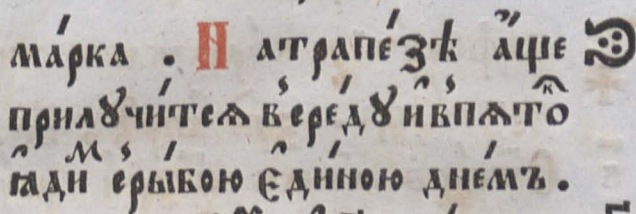 ма́рка . На трапе́зѣ а҆́ще
прилꙋчи́тсѧ в̾ сре́дꙋ и҆ в̾ пѧто́ⷦ҇
ꙗ҆ди́ⷨ с̾ ры́бою є҆ди́ною дне́мъ .